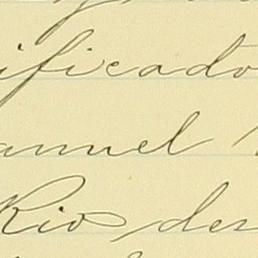 ificado
anuel
Rio des